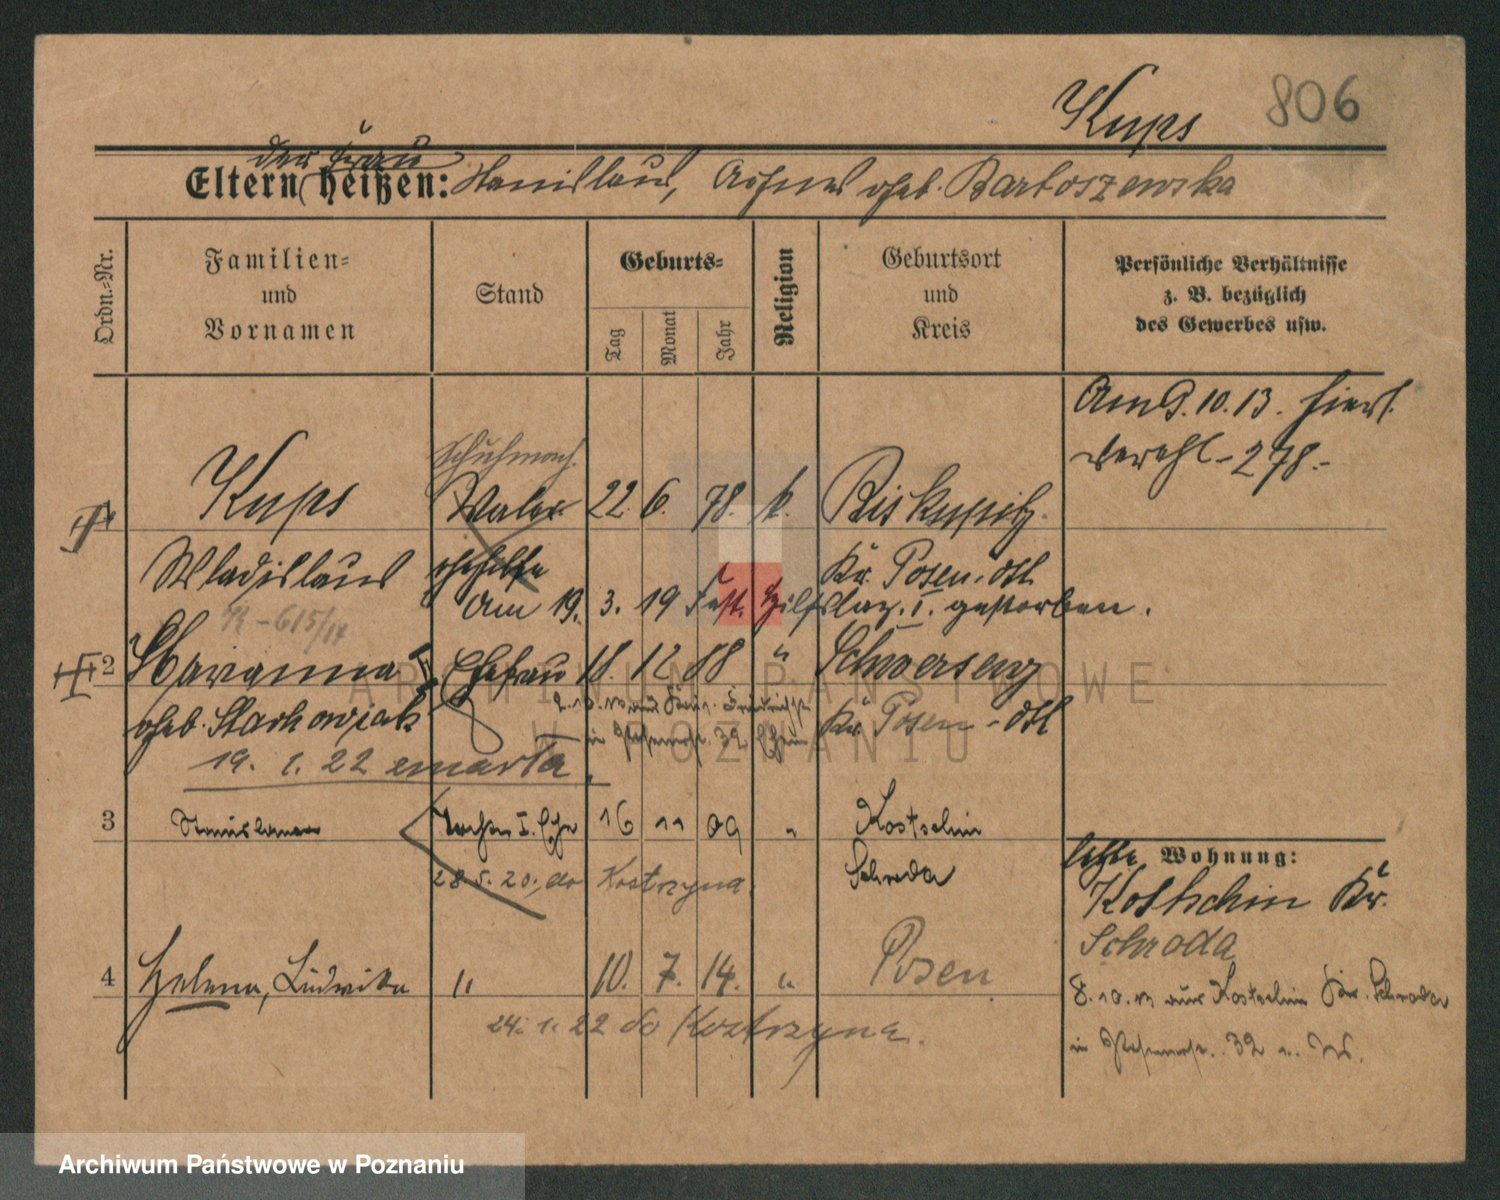 Kups 806
der Frau
Eltern heißen: Stanislaus, Agnes geb. Bartoszewska
Ordn.-Nr.
Familien- und Vornamen
Stand
Geburts-
Tag
Monat
Jahr
Religion
Geburtsort und Kreis
Persönliche Verhältnisse z. B. bezüglich des Gewerbes usw.
Am 9. 10. 13. hier
verehl. 278.
Schuhmach.
Kups Maler 22. 6. 78. k. Biskupitz
Wladislaus gehilfe Kr. Posen-Ost
Am 19. 3. 19 Fest. Hilfslaz. I. gestorben.
615/14
2 Maranna Ehefrau 18. 12 88 " Schwersenz
geb. Starkowiak Kr. Posen-Ost
19. 1. 22 zmarła
3 Stanislaus Tochter I. Ehe 16 11 09 " Kostschin
28 5. 20. do Kostrzyna. Schroda
letzte Wohnung:
Kostschin Kr.
Schroda
4 Helena, Ludwika " 10. 7. 14. " Posen
8. 10. 13 aus Kostschin Kr. Schroda
24. 1. 22 do Kostrzyna.
in 32
ARCHIWUM PAŃSTWOWE
W POZNANIU
Archiwum Państwowe w Poznaniu